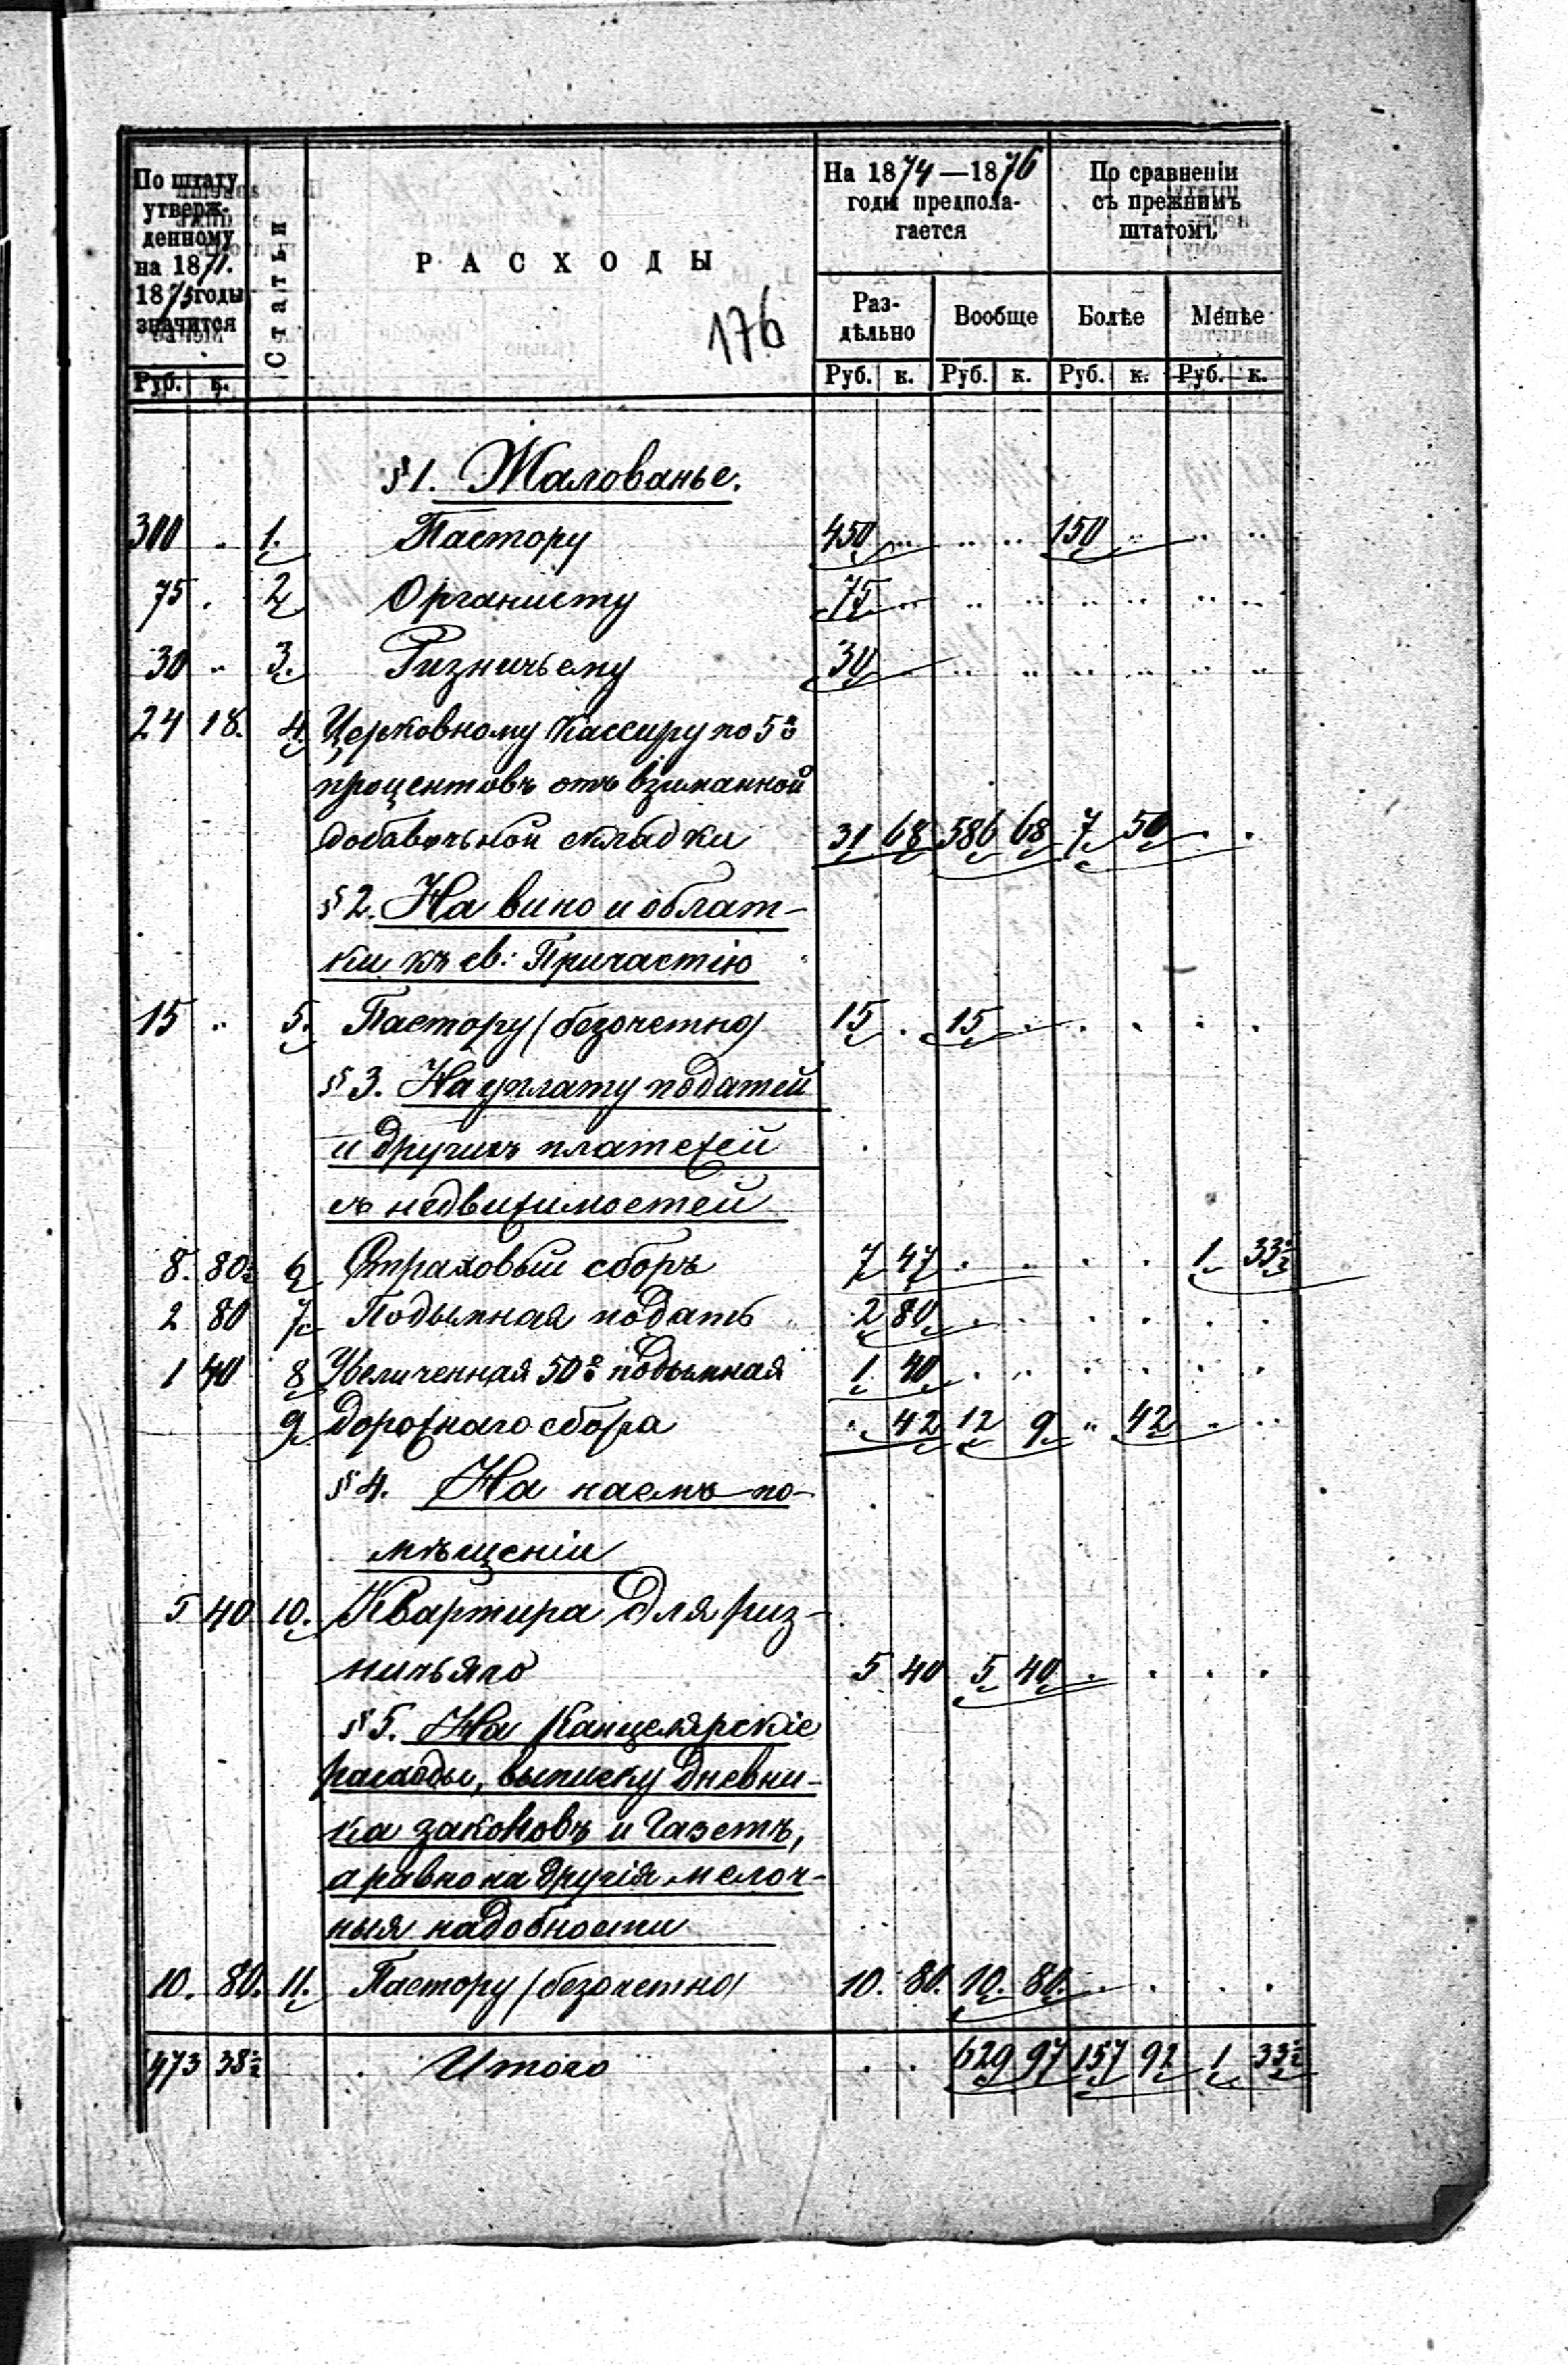 По штату утверж-денному на 1871. 1873 годы значится
Статьи
РАСХОДЫ
На 1874—1876 годы предпола-гается
По сравненіи съ прежнимъ штатомъ
176
Раз-дѣльно Вообще Болѣе Менѣе
Руб. к. Руб. к. Руб. к. Руб. к. Руб. к.
§ 1. Жалованье.
300 . 1. Пастору 450 .. .. .. 150 .. .. ..
75 . 2 Органисту 75 .. .. .. .. .. .. ..
30 .. 3. Ризничьему 30 .. .. .. .. .. .. ..
24 18. 4. Церковному Кассиру по 5%
процентовъ отъ взиманной
добавочьной складки 31 68 586 68 7 50 . .
§ 2. На вино и облат-
ки къ св: Причастію
15 .. 5. Пастору (безочетно) 15 . 15 . . . . .
§ 3. На уплату податей
и другихъ платежей
съ недвижимостей
8. 80½ 6 Страховый сборъ 7 47 . .. . . 1 33½
2 80 7. Подымная подать 2 80 . . . . . .
1 40 8 Увеличенная 50% подымная 1 40 . .. . . . .
9 Дорожнаго сбора .. 42 12 9 .. 42 . ..
§ 4. На наемъ по-
мѣщеніи
5 40 10. Квартира для риз-
ничьяго 5 40 5 40 . . . .
§ 5. На Канцелярскіе
расходы, выписку Дневни-
ка законовъ и Газетъ,
а равно на другія мелоч-
ныя надобности
10. 80. 11. Пастору (безочетно) 10. 80. 10. 80. . . . .
473 38½ Итого . . 629 97 157 92 1 33½